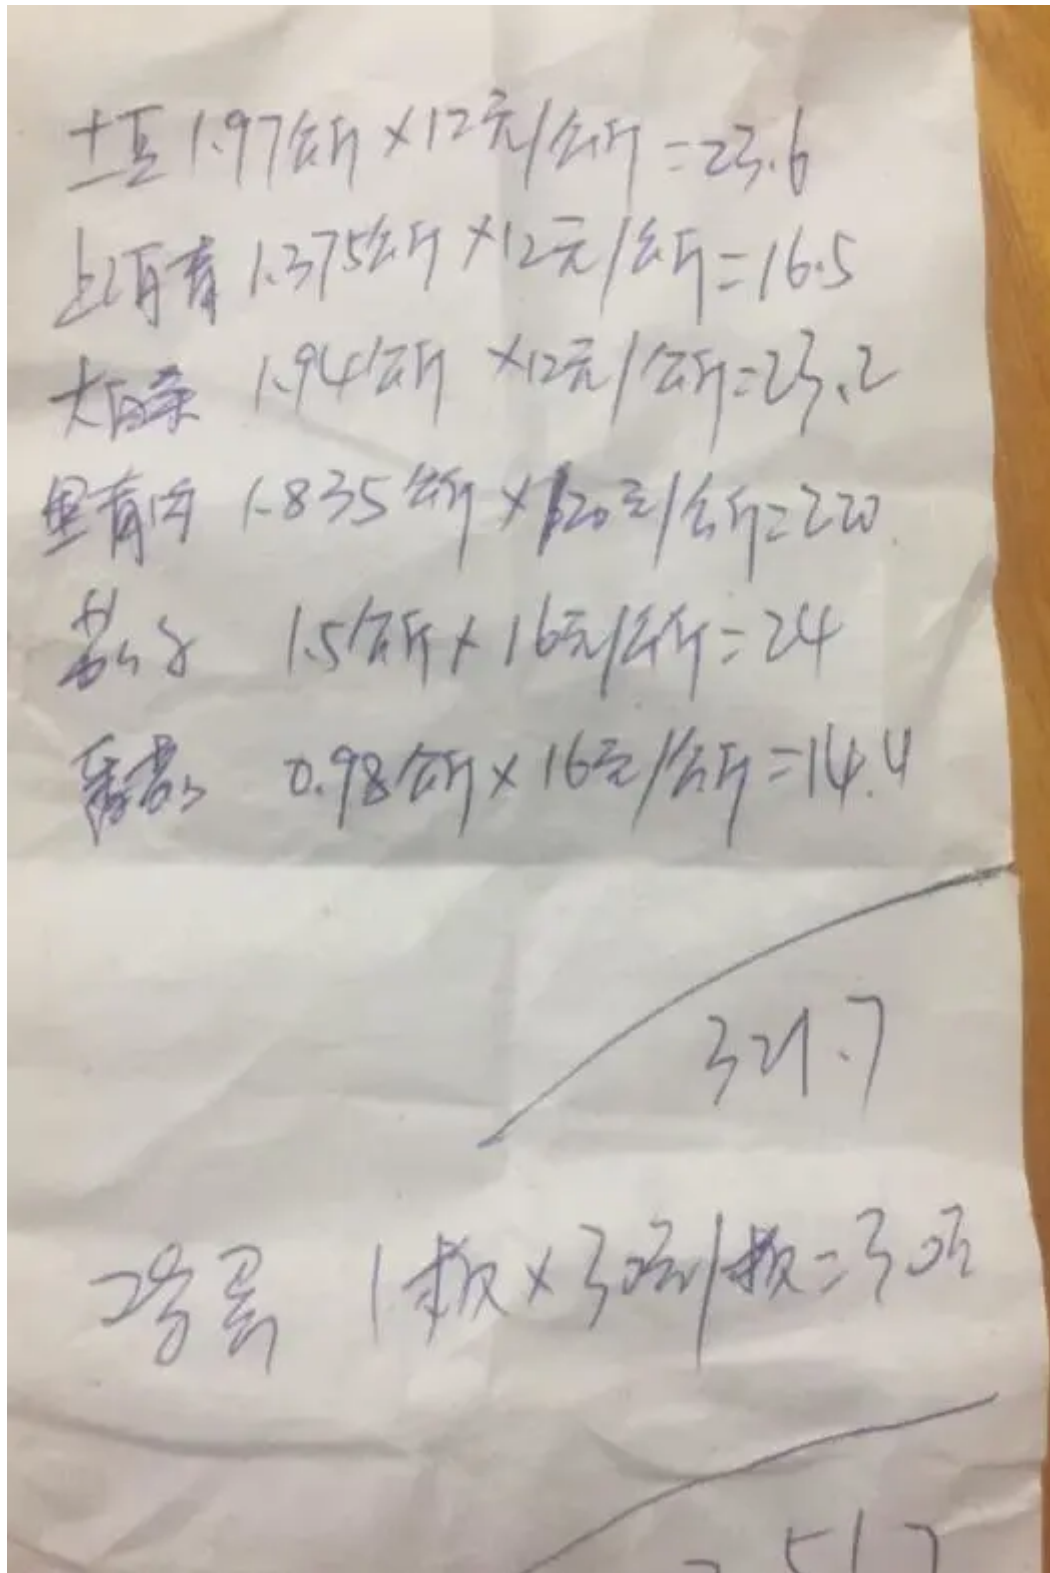 土豆 1.97公斤×12元/公斤=23.6
上海青 1.375公斤×12元/公斤=16.5
大白菜 1.94公斤×12元/公斤=23.2
1.835公斤×120元/公斤=220
茄子 1.5公斤×16元/公斤=24
番茄 0.98公斤×16元/公斤=14.4
321.7
1板×30元/板=30元
351.7